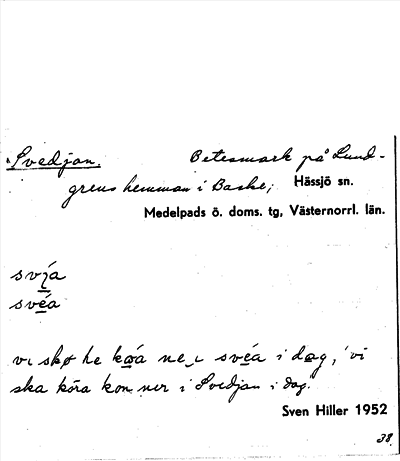 Svedjan. Betesmark på Lund-
grens hemman i Baske, Hässjö sn.
Medelpads ö. doms. tg, Västernorrl. län.
svéa
vi skø he ne i svéa i dag, 'vi
ska köra kon ner i Svedjan i dag.'
Sven Hiller 1952
38.